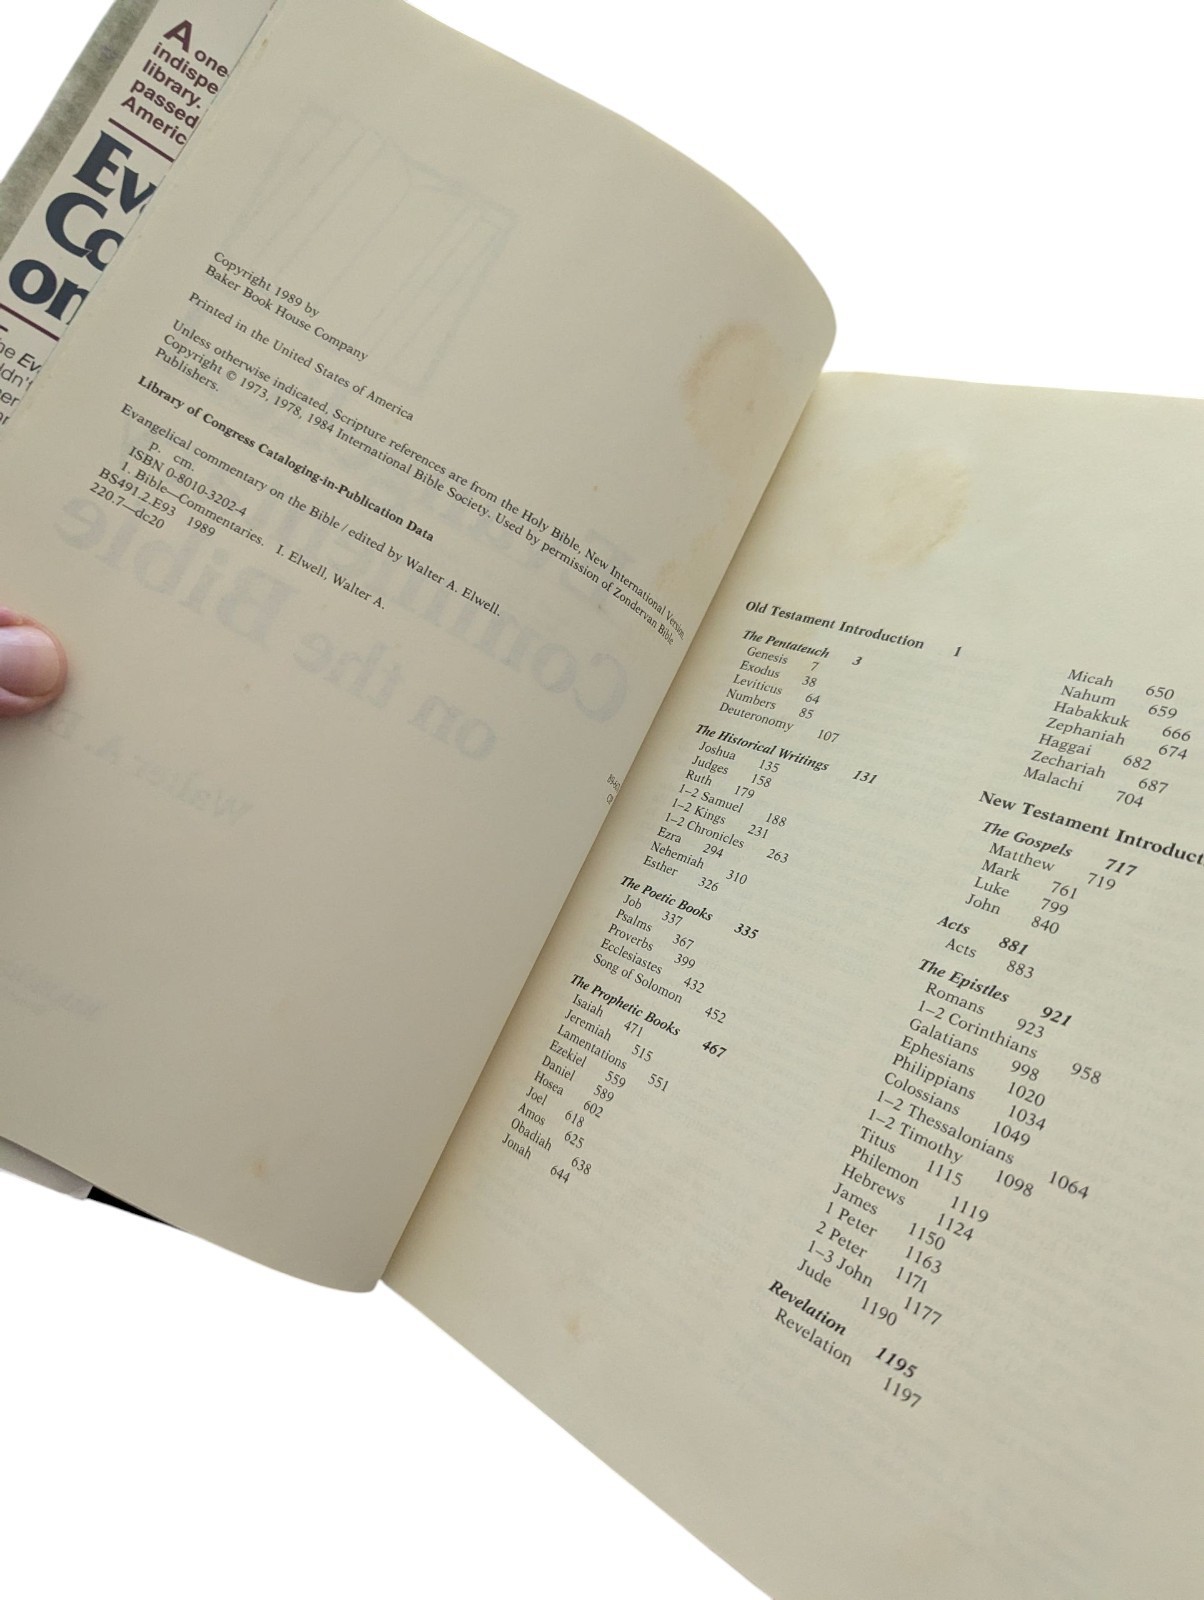 A one
indispe
library.
passed
Americ
Ev
Co
on
Copyright 1989 by
Baker Book House Company
Printed in the United States of America
Unless otherwise indicated, Scripture references are from the Holy Bible, New International Version,
Copyright © 1973, 1978, 1984 International Bible Society. Used by permission of Zondervan Bible
Publishers.
Library of Congress Cataloging-in-Publication Data
Evangelical commentary on the Bible / edited by Walter A. Elwell.
p. cm.
ISBN 0-8010-3202-4
1. Bible—Commentaries. I. Elwell, Walter A.
BS491.2.E93 1989
220.7—dc20
Old Testament Introduction 1
The Pentateuch 3
Genesis 7
Exodus 38
Leviticus 64
Numbers 85
Deuteronomy 107
The Historical Writings 131
Joshua 135
Judges 158
Ruth 179
1–2 Samuel 188
1–2 Kings 231
1–2 Chronicles 263
Ezra 294
Nehemiah 310
Esther 326
The Poetic Books 335
Job 337
Psalms 367
Proverbs 399
Ecclesiastes 432
Song of Solomon 452
The Prophetic Books 467
Isaiah 471
Jeremiah 515
Lamentations 551
Ezekiel 559
Daniel 589
Hosea 602
Joel 618
Amos 625
Obadiah 638
Jonah 644
Micah 650
Nahum 659
Habakkuk 666
Zephaniah 674
Haggai 682
Zechariah 687
Malachi 704
New Testament Introducti
The Gospels 717
Matthew 719
Mark 761
Luke 799
John 840
Acts 881
Acts 883
The Epistles 921
Romans 923
1–2 Corinthians 958
Galatians 998
Ephesians 1020
Philippians 1034
Colossians 1049
1–2 Thessalonians 1064
1–2 Timothy 1098
Titus 1115
Philemon 1119
Hebrews 1124
James 1150
1 Peter 1163
2 Peter 1171
1–3 John 1177
Jude 1190
Revelation 1195
Revelation 1197